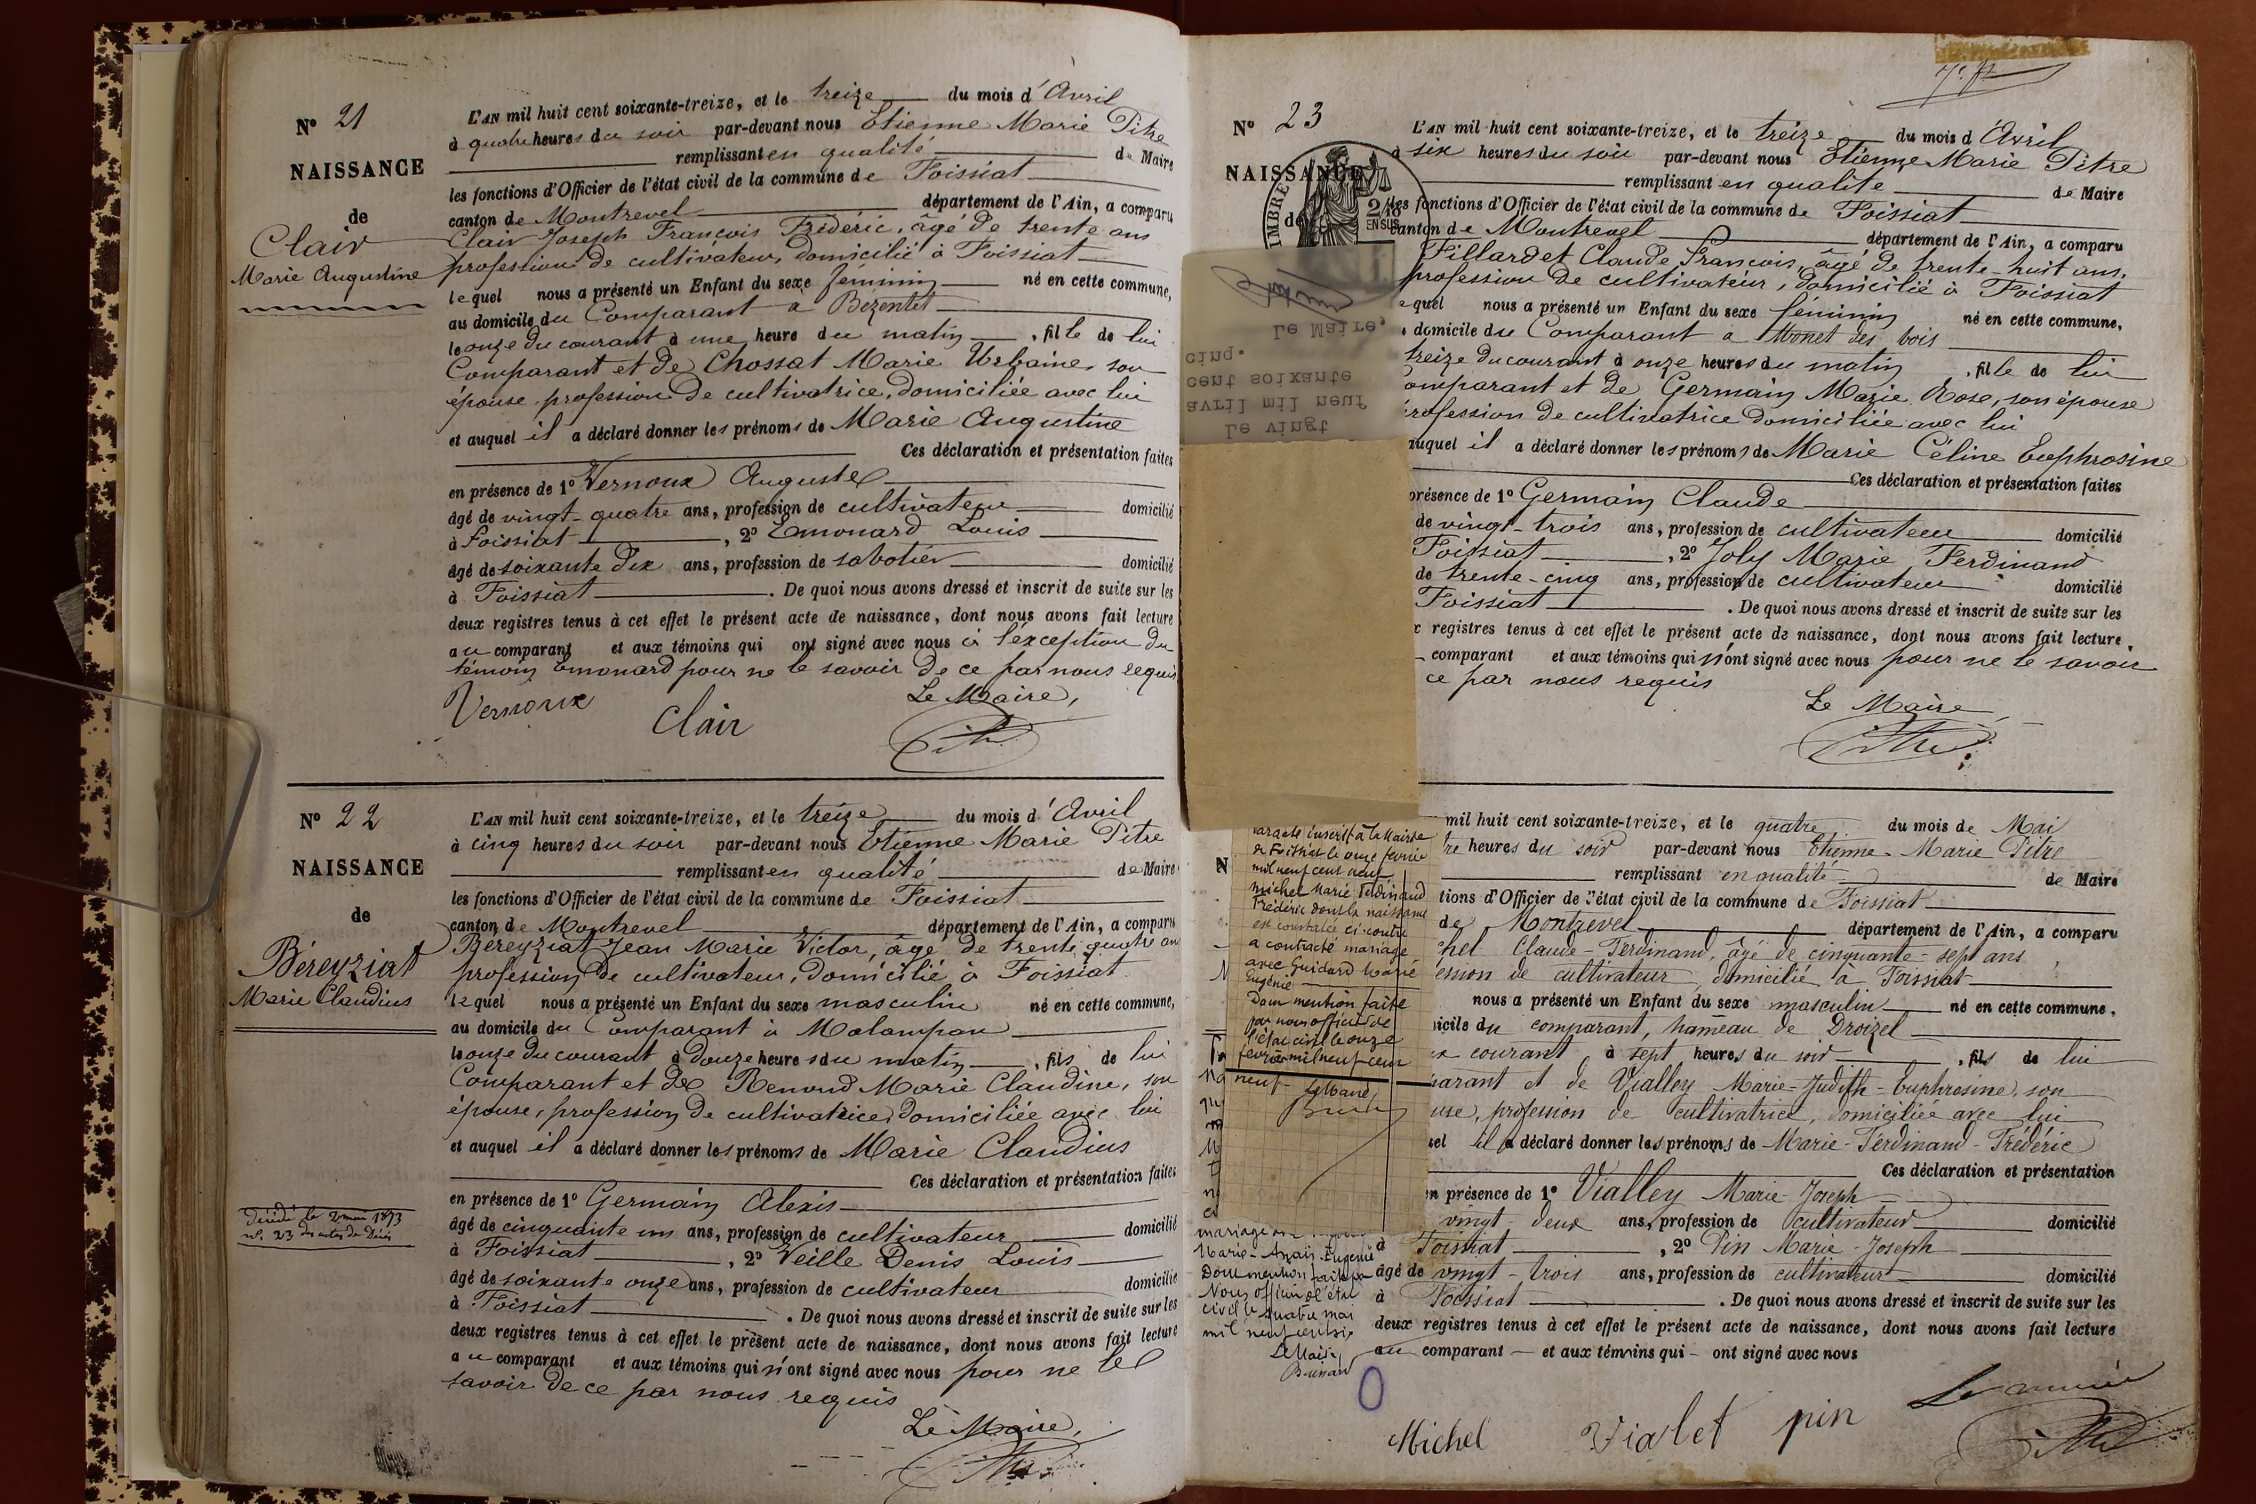 N° 21
NAISSANCE
de
Clair
Marie Augustine
L'AN mil huit cent soixante-treize, et le treize du mois d'Avril
à quatre heures du soir par-devant nous Etienne Marie Pitre
remplissant en qualité de Maire
les fonctions d'Officier de l'état civil de la commune de Foissiat
canton de Montrevel département de l'Ain, a comparu
Clair Joseph François Frédéric, âgé de trente ans
profession de cultivateur, domicilié à Foissiat
lequel nous a présenté un Enfant du sexe féminin né en cette commune,
au domicile du Comparant a Bezentet
le onze du courant à une heure du matin, fille de lui
Comparant et de Chossat Marie Urbaine, son
épouse profession de cultivatrice, domiciliée avec lui
et auquel il a déclaré donner les prénoms de Marie Augustine
Ces déclaration et présentation faites
en présence de 1° Vernoux Auguste
âgé de vingt-quatre ans, profession de cultivateur domicilié
à Foissiat, 2° Emonard Louis
âgé de soixante dix ans, profession de sabotier domicilié
à Foissiat. De quoi nous avons dressé et inscrit de suite sur les
deux registres tenus à cet effet le présent acte de naissance, dont nous avons fait lecture
au comparant et aux témoins qui ont signé avec nous à l'exception du
témoin Emonard pour ne le savoir de ce par nous requis
Le Maire,
Vernoux Clair
N° 22
NAISSANCE
de
Béreyziat
Marie Claudius
Décédé le 2 mai 1873
n°. 23 des actes de Décès
L'AN mil huit cent soixante-treize, et le treize du mois d'Avril
à cinq heures du soir par-devant nous Etienne Marie Pitre
remplissant en qualité de Maire
les fonctions d'Officier de l'état civil de la commune de Foissiat
canton de Montrevel département de l'Ain, a comparu
Béreyziat Jean Marie Victor, âgé de trente quatre ans
profession de cultivateur, domicilié à Foissiat
lequel nous a présenté un Enfant du sexe masculin né en cette commune,
au domicile du Comparant à Malampan
le onze du courant à Douze heures du matin, fils de lui
Comparant et de Renoud Marie Claudine, son
épouse, profession de cultivatrice, domiciliée avec lui
et auquel il a déclaré donner les prénoms de Marie Claudius
Ces déclaration et présentation faites
en présence de 1° Germain Alexis
âgé de cinquante un ans, profession de cultivateur domicilié
à Foissiat, 2° Veille Denis Louis
âgé de soixante onze ans, profession de cultivateur domicilié
à Foissiat. De quoi nous avons dressé et inscrit de suite sur les
deux registres tenus à cet effet le présent acte de naissance, dont nous avons fait lecture
au comparant et aux témoins qui n'ont signé avec nous pour ne le
savoir de ce par nous requis
Le Maire,
N° 23
NAISSANCE
de
TIMBRE
2/10
EN SUS
Le Maire,
cinq.
cent soixante
avril mil neuf
Le vingt
L'AN mil huit cent soixante-treize, et le treize du mois d'Avril
à six heures du soir par-devant nous Etienne Marie Pitre
remplissant en qualité de Maire
les fonctions d'Officier de l'état civil de la commune de Foissiat
canton de Montrevel département de l'Ain, a comparu
Fillardet Claude François, âgé de trente-huit ans,
profession de cultivateur, domicilié à Foissiat
equel nous a présenté un Enfant du sexe féminin né en cette commune,
domicile du Comparant a Monet des bois
treize du courant à onze heures du matin, fille de lui
omparant et de Germain Marie Rose, son épouse
profession de cultivatrice domiciliée avec lui
auquel il a déclaré donner les prénoms de Marie Céline Euphrosine
Ces déclaration et présentation faites
présence de 1° Germain Claude
de vingt-trois ans, profession de cultivateur domicilié
Foissiat, 2° Joly Marie Ferdinand
de trente-cinq ans, profession de cultivateur domicilié
Foissiat. De quoi nous avons dressé et inscrit de suite sur les
x registres tenus à cet effet le présent acte de naissance, dont nous avons fait lecture,
comparant et aux témoins qui n'ont signé avec nous pour ne le savoir
ce par nous requis
Le Maire
N
par acte inscrit à la Mairie
de Foissiat le onze février
mil neuf cent neuf
Michel Marie Ferdinand
Frédéric dont la naissance
est constatée ci-contre
a contracté mariage
avec Guidard Marie
Eugénie
Dont mention faite
par nous officier de
l'état civil le onze
février mil neuf cent
neuf- Le Maire,
mariage
Marie-Anaïs-Eugénie
Dont mention faite par
Nous officier de l'état
civil le quatre mai
mil neuf cent six
Le Maire,
mil huit cent soixante-treize, et le quatre du mois de Mai
re heures du soir par-devant nous Etienne Marie Pitre
remplissant en qualité de Maire
tions d'Officier de l'état civil de la commune de Foissiat
de Montrevel département de l'Ain, a comparu
chel Claude-Ferdinand, âgé de cinquante-sept ans
ession de cultivateur, domicilié à Foissiat
nous a présenté un Enfant du sexe masculin né en cette commune,
icile du comparant, hameau de Droizel
courant à sept heures du soir, fils de lui
parant et de Vialley Marie-Judith-Euphrosine, son
use, profession de cultivatrice, domiciliée avec lui
uel il a déclaré donner les prénoms de Marie-Ferdinand-Frédéric
Ces déclaration et présentation
en présence de 1° Vialley Marie Joseph
vingt deux ans, profession de cultivateur domicilié
à Foissiat, 2° Pin Marie-Joseph
âgé de vingt-trois ans, profession de cultivateur domicilié
à Foissiat. De quoi nous avons dressé et inscrit de suite sur les
deux registres tenus à cet effet le présent acte de naissance, dont nous avons fait lecture
au comparant — et aux témoins qui — ont signé avec nous
Le maire
Michel Vialet pin